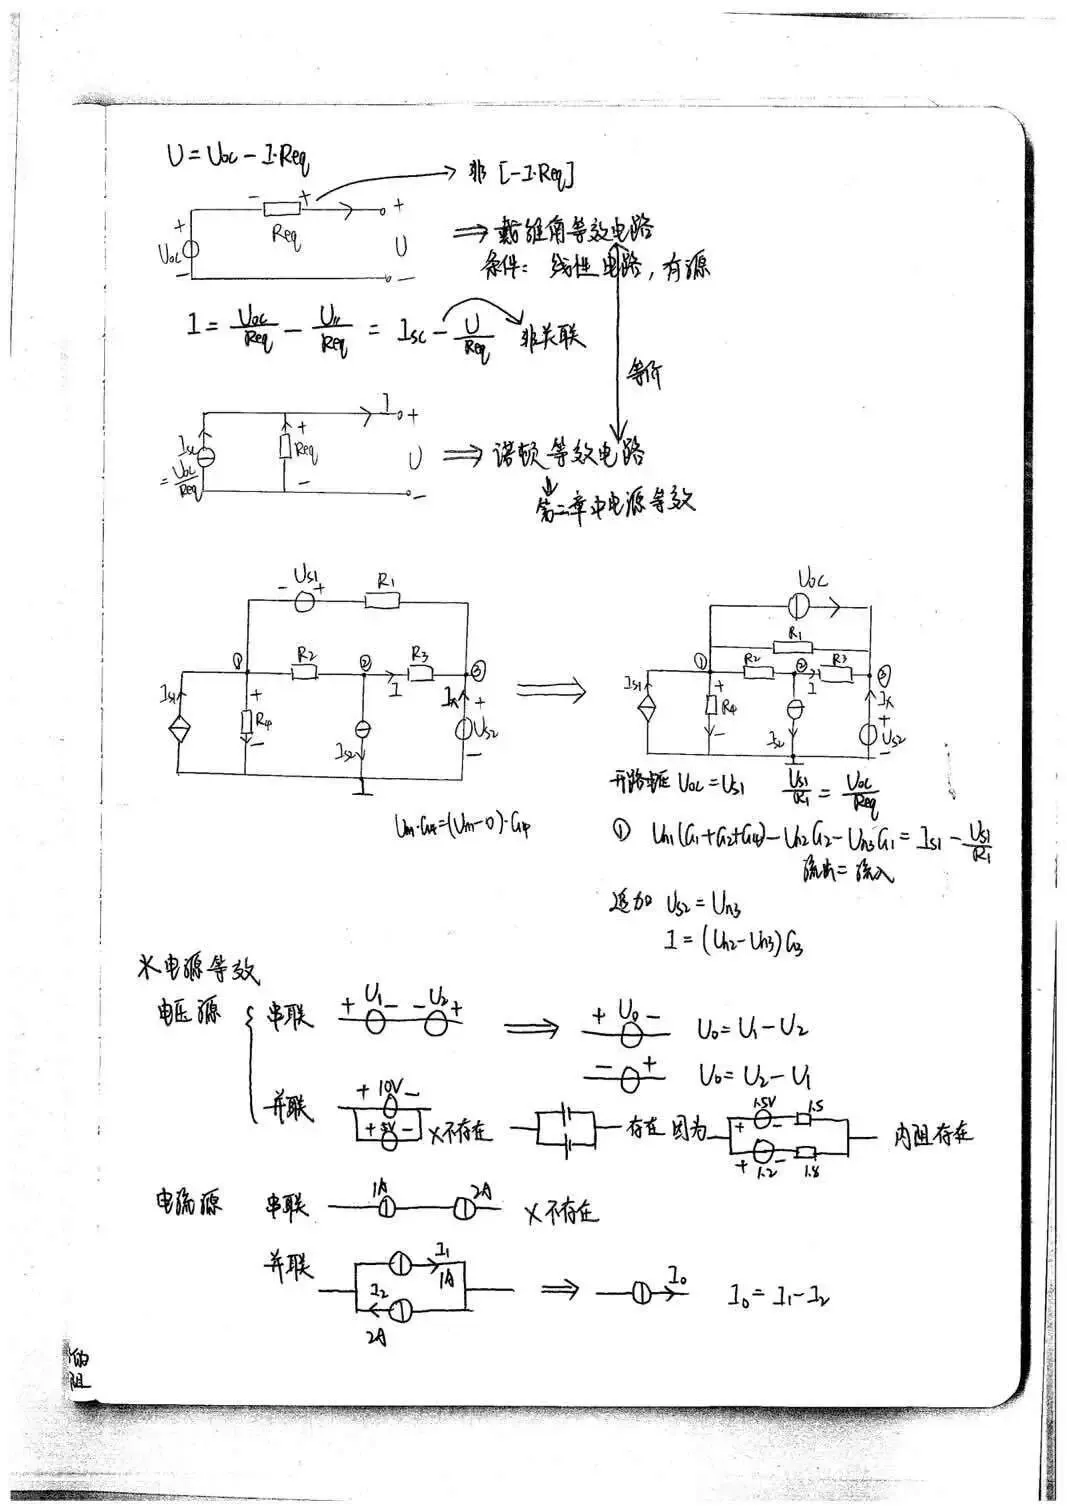 U = Uoc - I·Req
非 [-I·Req]
- +
Req
+ Uoc -
+ U -
⇒ 戴维南等效电路
条件: 线性电路, 有源
I = Uoc/Req - U/Req = Isc - U/Req 非关联
等价
Isc = Uoc/Req
+ Req -
I + U -
⇒ 诺顿等效电路
第二章中电源等效
- Us1 + R1
① R2 ② R3 ③
I
Is1 + R4 - Is2 Ix + Us2
Un1·G4=(Un1-0)·G4
⇒
Uoc
R1
① R2 ② R3 ③
I
Is1 + R4 - Is2 Ix + Us2 -
开路电压 Uoc = Us1 Us1/R1 = Uoc/Req
① Un1(G1+G2+G4)-Un2G2-Un3G1 = Is1 - Us1/R1
流出 = 流入
追加 Us2 = Un3
I = (Un2-Un3)G3
电源等效
电压源 { 串联 + U1 - - U2 + ⇒ + U0 - U0 = U1 - U2
- + U0 = U2 - U1
并联 + 10V - + 5V - ×不存在 存在 因为 + 1.5V - 1.5 + 1.2 - 1.8 内阻存在
电流源 串联 1A 2A ×不存在
并联 I1 1A I2 2A ⇒ I0 I0 = I1 - I2
阻